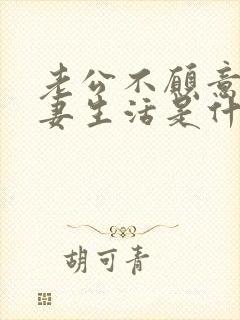 老公不愿意
妻生活是什
胡可青